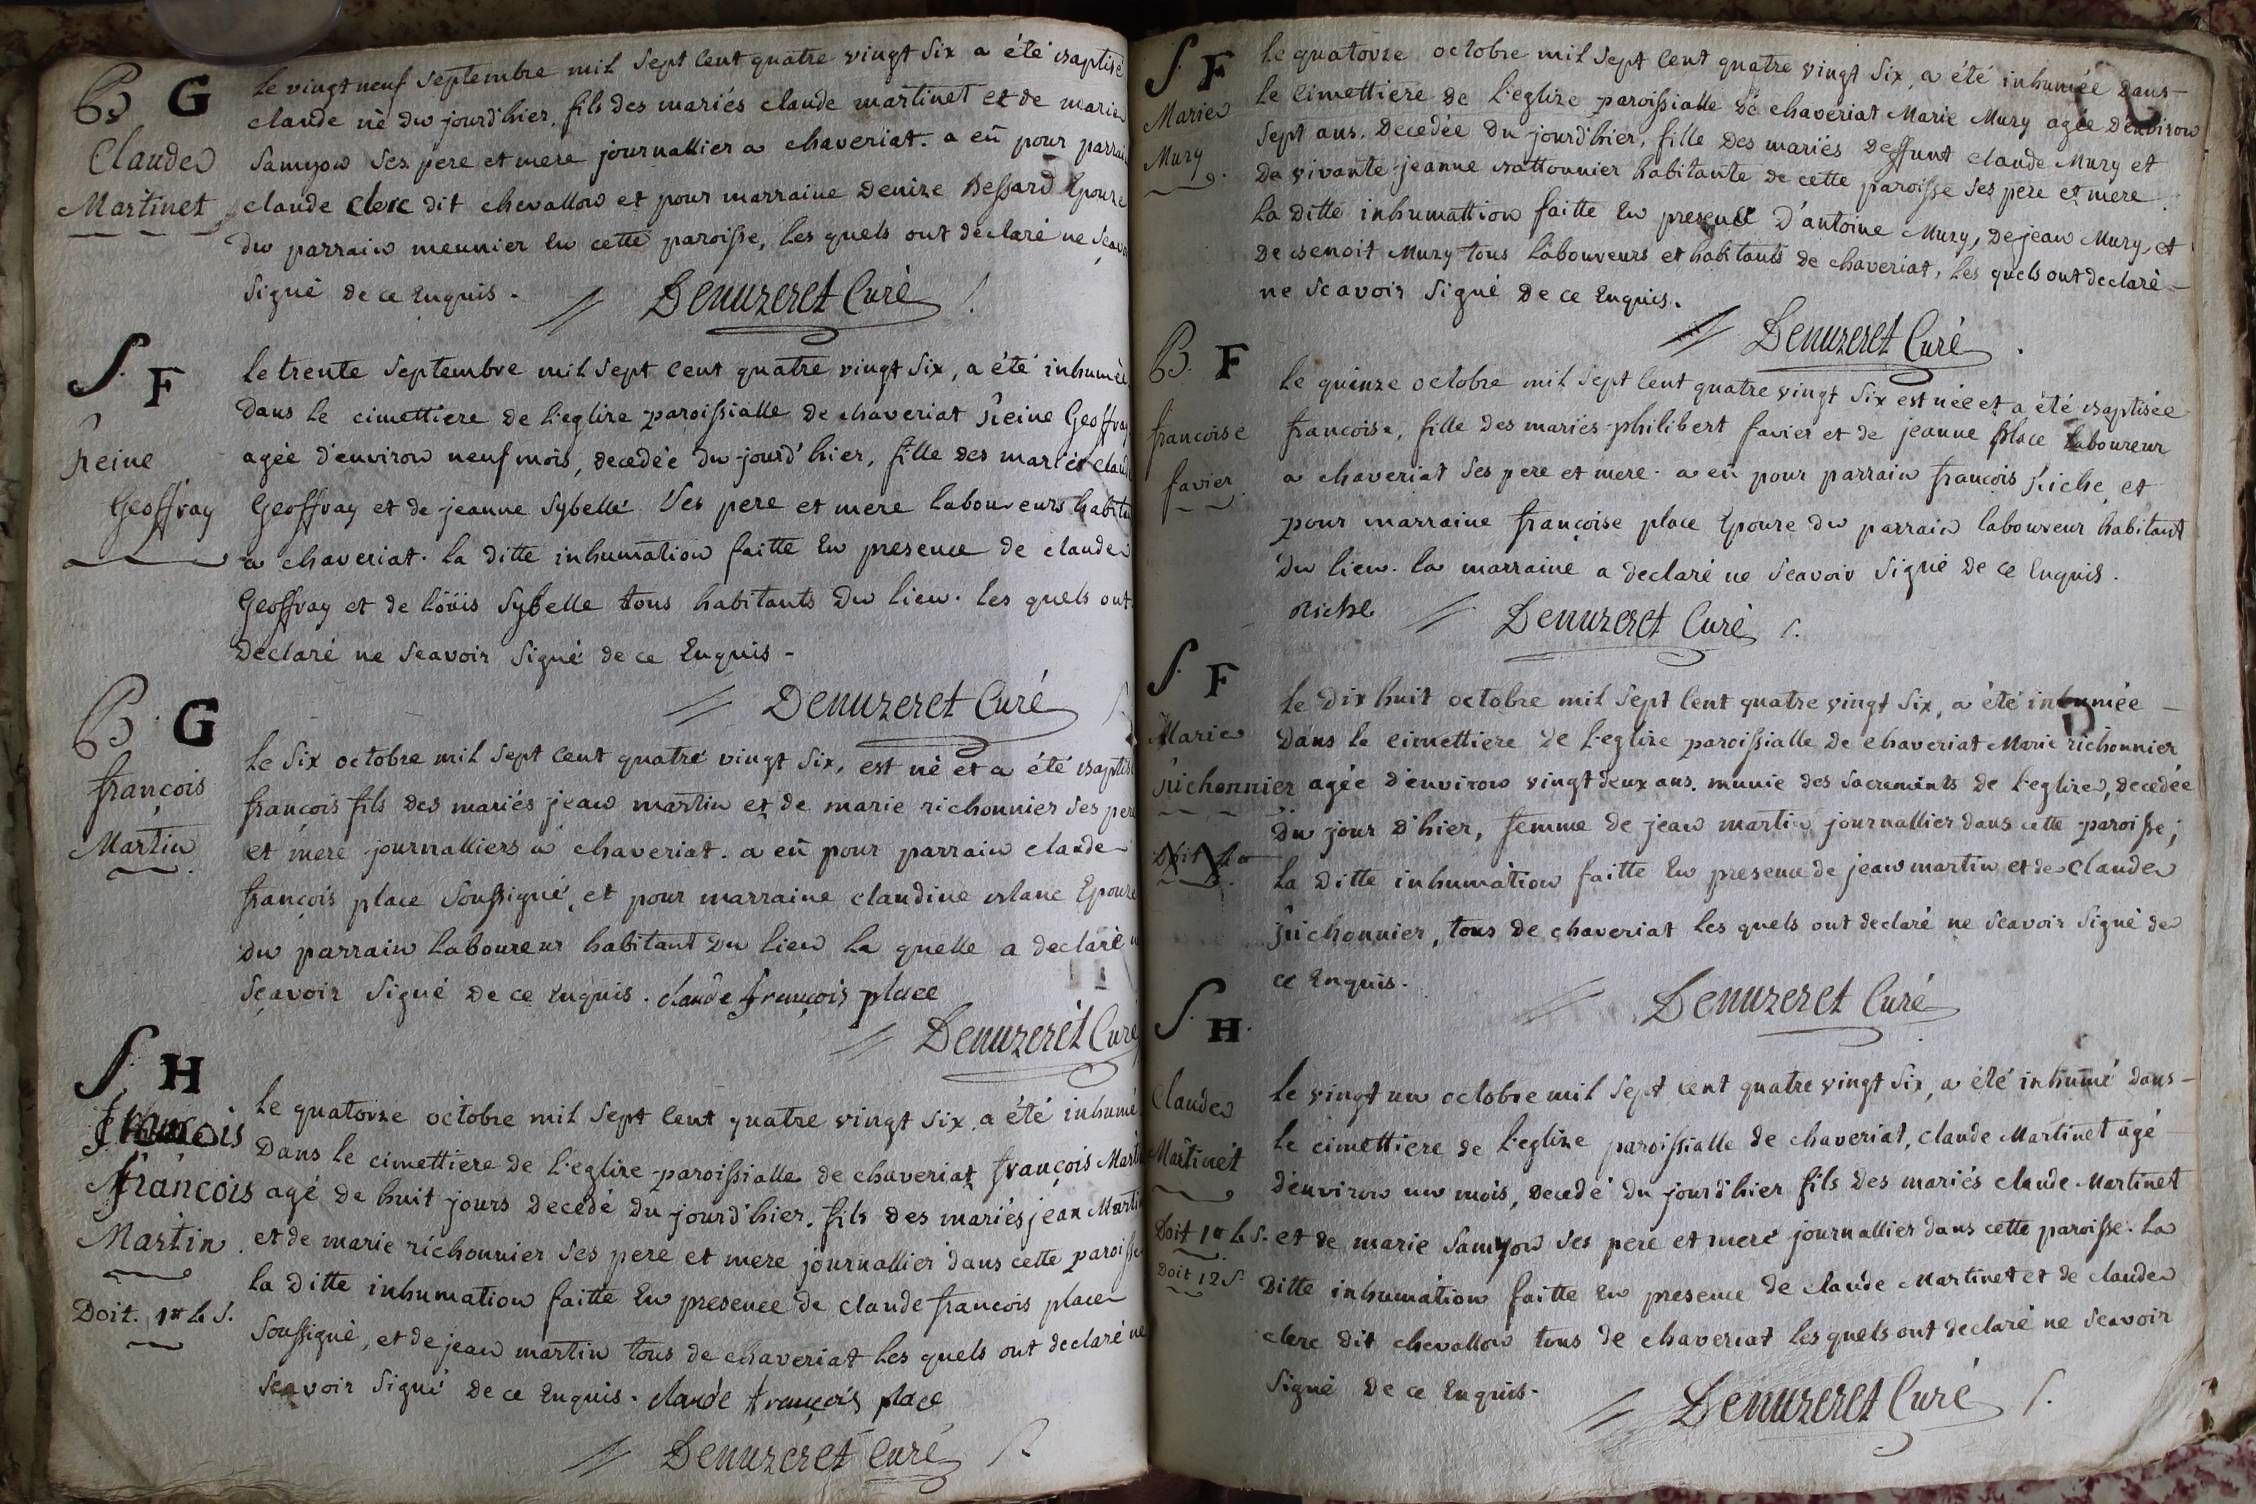 B G
Claude
Martinet
le vingt neuf septembre mil sept cent quatre vingt six a été baptisé
claude né du jourd'hier, fils des mariés claude martinet et de marie
samyon ses pere et mere journallier a chaveriat. a eû pour parrain
claude clerc dit chevallon et pour marraine denize Bessard Epouze
du parrain meunier en cette paroisse, les quels ont déclaré ne scavoir
signé de ce Enquis.
Denuzeret Curé
S. F
Reine
Geoffray
le trente septembre mil sept cent quatre vingt six, a été inhumée
dans le cimettiere de l'eglize paroissialle de chaveriat Reine Geoffray
agée d'environ neuf mois, decedée du jourd'hier, fille des mariés claude
Geoffray et de jeanne Sybelle Ses pere et mere laboureurs
a chaveriat. la ditte inhumation faitte En presence de claude
Geoffray et de löüis Sybelle tous habitants du lieu. les quels ont
declaré ne scavoir signé de ce Enquis -
Denuzeret Curé
B. G
françois
Martin
le six octobre mil sept cent quatre vingt six, est né et a été baptisé
françois fils des mariés jean martin et de marie richonnier ses pere
et mere journalliers a chaveriat. a eû pour parrain claude
françois place soussigné, et pour marraine claudine blanc Epouze
du parrain laboureur habitant du lieu la quelle a declaré ne
scavoir signé de ce Enquis. claude françois place
Denuzeret Curé
S. H
françois
françois
Martin.
Doit. 1# 4 s.
le quatorze octobre mil sept cent quatre vingt six, a été inhumé
dans le cimettiere de l'eglize paroissialle de chaveriat françois Martin
agé de huit jours decedé du jourd'hier, fils des mariés jean Martin
et de marie richonnier ses pere et mere journallier dans cette paroisse
la ditte inhumation faitte En presence de claude francois place
soussigné, et de jean martin tous de chaveriat les quels ont declaré ne
scavoir signé de ce Enquis. claude françois place
Denuzeret Curé
S. F
Marie
Mury.
le quatorze octobre mil sept cent quatre vingt six, a été inhumée dans
le cimettiere de l'eglize paroissialle de chaveriat Marie Mury agée d'environ
sept ans, decedée du jourd'hier, fille des mariés deffunt claude Mury et
de vivante jeanne battonnier habitante de cette paroisse ses pere et mere.
la ditte inhumattion faitte En presence d'antoine Mury, de jean Mury, et
de benoit Mury tous labouveurs et habitants de chaveriat, les quels ont declaré
ne scavoir signé de ce Enquis.
Denuzeret Curé
B. F
francoise
favier.
le quinze octobre mil sept cent quatre vingt six est née et a été baptisée
francoise, fille des mariés philibert favier et de jeanne place laboureur
a chaveriat ses pere et mere. a eû pour parrain françois Riche, et
pour marraine françoise place Epouze du parrain labouveur habitant
du lieu. la marraine a declaré ne scavoir signé de ce Enquis.
Riche Denuzeret Curé
S. F
Marie
Richonnier
le dix huit octobre mil sept cent quatre vingt six, a été inhumée
dans le cimettiere de l'eglize paroissialle de chaveriat Marie richonnier
agée d'environ vingt deux ans. munie des sacrements de l'eglize, decedée
du jour d'hier, femme de jean martin journallier dans cette paroisse;
la ditte inhumation faitte En presence de jean martin et de claude
Richonnier, tous de chaveriat les quels ont declaré ne scavoir signé de
ce Enquis.
Denuzeret Curé
S. H.
Claude
Martinet
Doit 1# 4 s.
Doit 12 s.
le vingt un octobre mil sept cent quatre vingt six, a été inhumé dans
le cimettiere de l'eglize paroissialle de chaveriat, claude Martinet agé
d'environ un mois, decedé du jourd'hier fils des mariés claude Martinet
et de marie Samyon ses pere et mere journallier dans cette paroisse. la
ditte inhumation faitte En presence de claude Martinet et de claude
clerc dit chevallon tous de chaveriat les quels ont declaré ne scavoir
signé de ce Enquis.
Denuzeret Curé